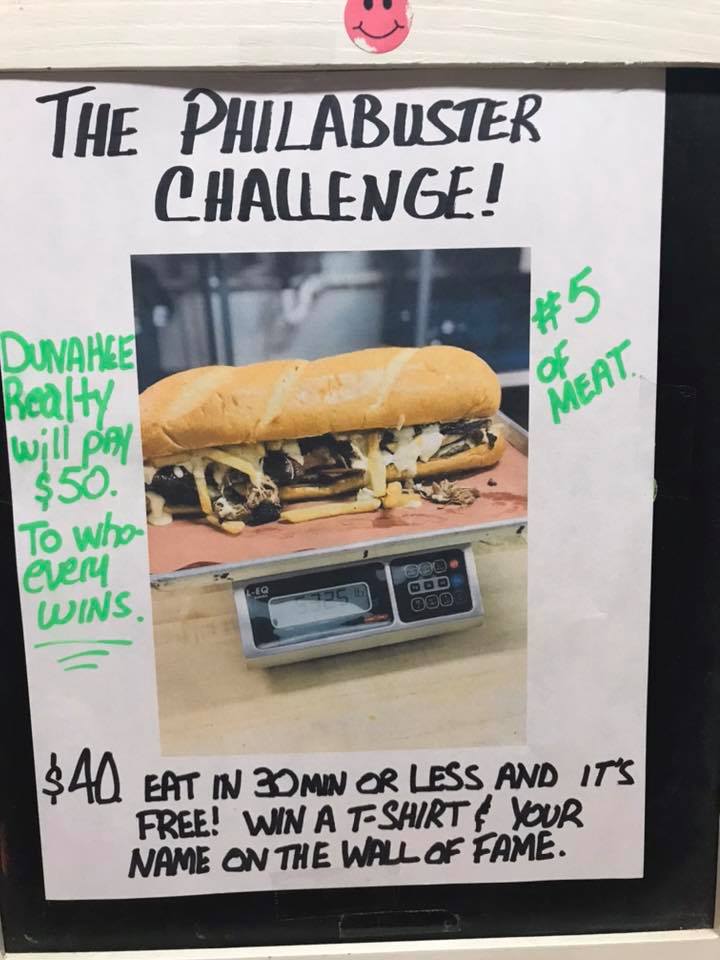 THE PHILABUSTER
CHALLENGE!
#5
OF
MEAT.
DUNAHEE
Realty
will pay
$50.
To who-
every
WINS.
$40 EAT IN 30 MIN OR LESS AND IT'S
FREE! WIN A T-SHIRT & YOUR
NAME ON THE WALL OF FAME.